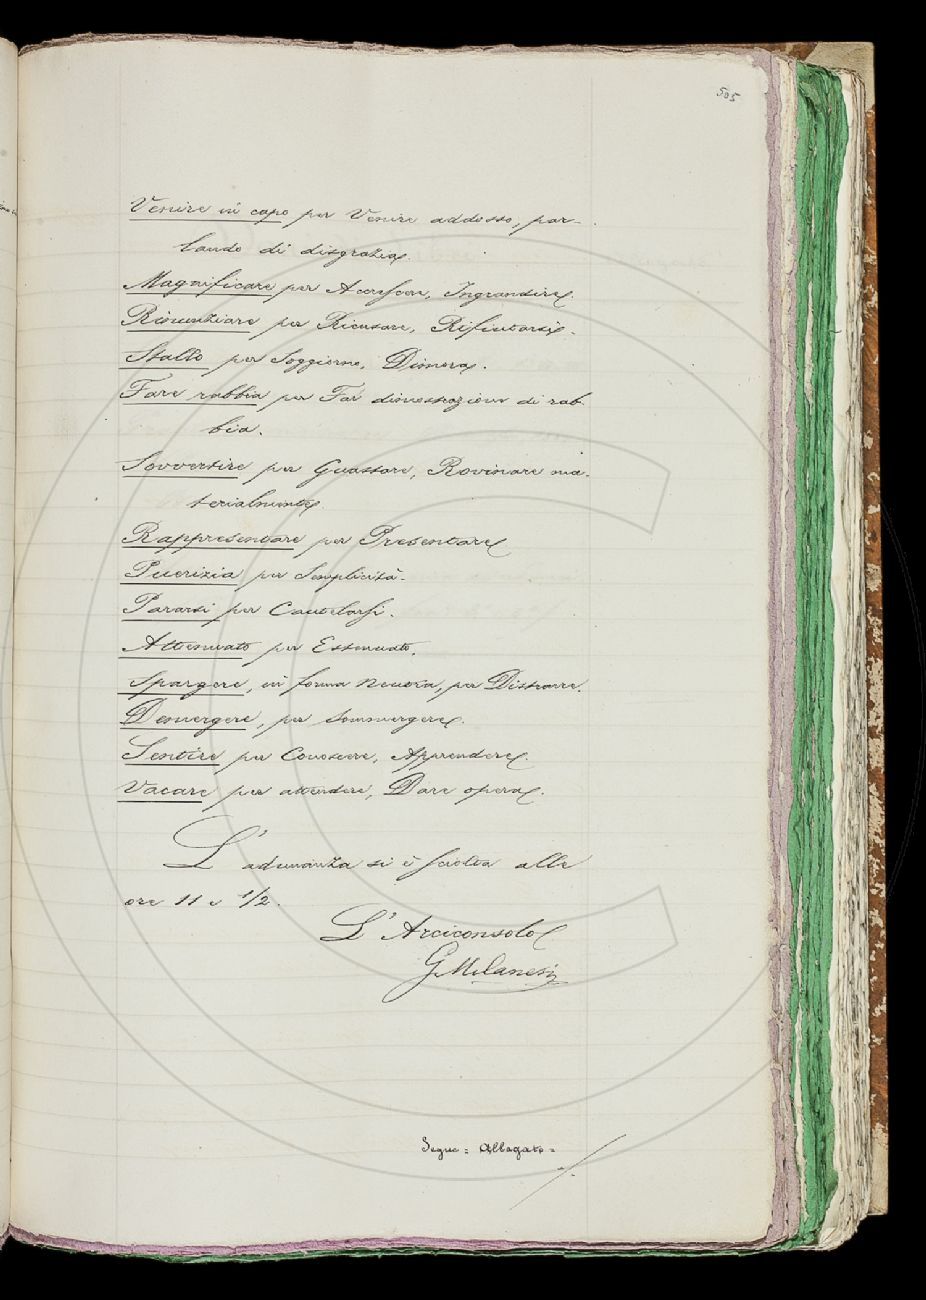 505
Venire in capo per Venire addosso, par-
lando di disgrazia.
Magnificare per Accrescere, Ingrandire.
Rinunziare per Ricusare, Rifiutarsi.
Stallo per Soggiorno, Dimora.
Fare rabbia per Far dimostrazione di rab-
bia.
Sovvertire per Guastare, Rovinare ma-
terialmente.
Rappresentare per Presentare
Puerizia per Semplicità.
Pararsi per Cautelarsi.
Attenuato per Estenuato.
Spargere, in forma neutra, per Distrarre.
Demergere, per Sommergere.
Sentire per Conoscere, Apprendere.
Vacare per attendere, Dare opera.
L'adunanza si è sciolta alle
ore 11 e 1/2.
L'Arciconsolo
G. Milanesi
Segue = Allegato =